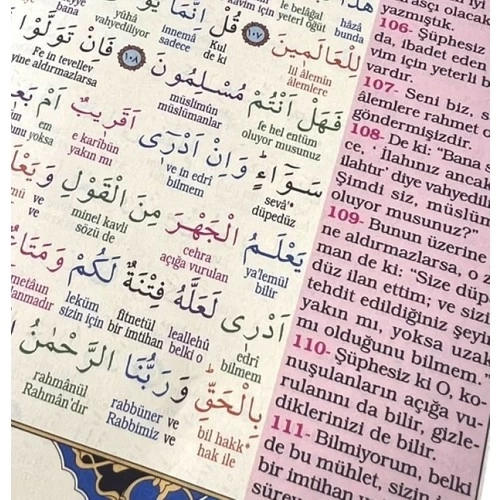 هٰذَا
hâzâ
bunda
le belâgal
için yeterli öğüt
لِلْعَالَمِينَ
lil âlemin
âlemlere
١٠٧
قُلْ
Kul
de ki
اِنَّمَا
innemâ
sadece
yûhâ
vahyediliyor
bana
فَهَلْ اَنْتُمْ مُسْلِمُونَ
fe hel entüm
oluyor musunuz
müslimûn
müslümanlar
١٠٨
فَاِنْ تَوَلَّوْا
Fe in tevellev
yine aldırmazlarsa
سَوَٓاءٍ وَاِنْ اَدْرٰٓى اَقَرِيبٌ اَمْ
sevâ'*
düpedüz
ve in edrî
bilmem
e karîbün
yakın mı
em
yoksa
يَعْلَمُ الْجَهْرَ مِنَ الْقَوْلِ
ya'lemül
bilir
cehra
açığa vurulan
minel kavli
sözü de
ve
ve
اَدْرٰى لَعَلَّهُ فِتْنَةٌ لَكُمْ وَمَتَاعٌ
edrî
bilmem
leallehû
belki o
fitnetül
bir imtihan
leküm
sizin için
ve
metâun
بِالْحَقِّ وَرَبُّنَا الرَّحْمٰنُ
bil hakk*
hak ile
ve
ve
rabbüner
Rabbimiz
rahmânül
Rahmân'dır
yazmıştık.
106- Şüphesiz
da, ibadet eden
vim için yeterli b
vardır.
107- Seni biz, s
âlemlere rahmet o
göndermişizdir.
108- De ki: "Bana s
ce, 'İlahınız ancak
ilahtır' diye vahyedili
Şimdi siz, müslüm
oluyor musunuz?"
109- Bunun üzerine
ne aldırmazlarsa, o z
man de ki: "Size düpe
düz ilan ettim; ve sizi
tehdit edildiğiniz şeyin
yakın mı, yoksa uzak
mı olduğunu bilmem."
110- Şüphesiz ki O, ko
nuşulanların açığa vu-
rulanını da bilir, gizle-
diklerinizi de bilir.
111- Bilmiyorum, belki
de bu mühlet, sizin
bir imtihan